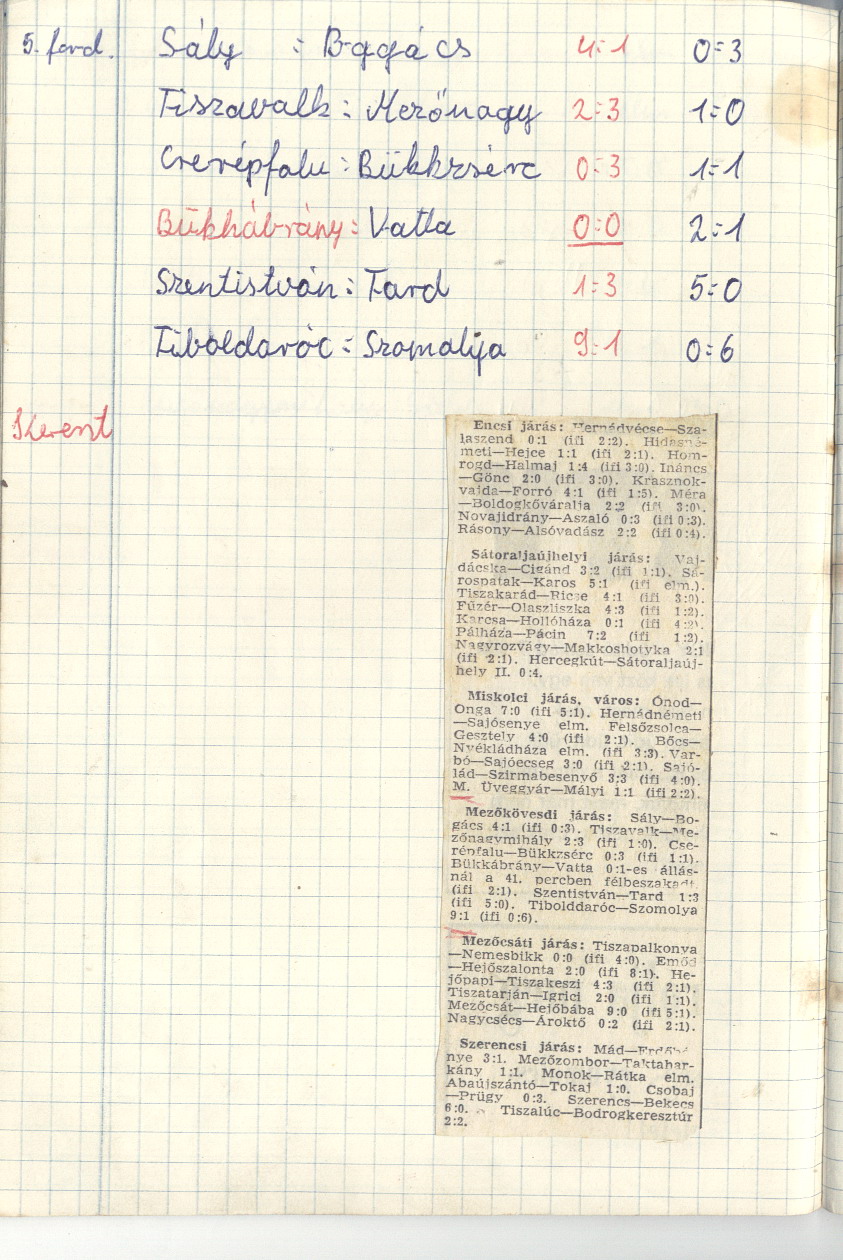 5. ford. Sály : Bogács 4:1 0:3
Tiszavalk : Mezőnagy 2:3 1:0
Cserépfalu : Bükkzsérc 0:3 1:1
Bükkábrány : Vatta 0:0 2:1
Szentistván : Tard 1:3 5:0
Tiboldaróc : Szomolya 9:1 0:6
Encsi járás: Hernádvécse—Sza-
laszend 0:1 (ifi 2:2). Hidasné-
meti—Hejce 1:1 (ifi 2:1). Hom-
rogd—Halmaj 1:4 (ifi 3:0). Ináncs
—Gönc 2:0 (ifi 3:0). Krasznok-
vajda—Forró 4:1 (ifi 1:5). Méra
—Boldogkőváralja 2:2 (ifi 3:0).
Novajidrány—Aszaló 0:3 (ifi 0:3).
Rásony—Alsóvadász 2:2 (ifi 0:4).
Sátoraljaújhelyi járás: Vaj-
dácska—Cigánd 3:2 (ifi 1:1). Sá-
rospatak—Karos 5:1 (ifi elm.).
Tiszakarád—Ricse 4:1 (ifi 3:0).
Füzér—Olaszliszka 4:3 (ifi 1:2).
Karcsa—Hollóháza 0:1 (ifi 4:2).
Pálháza—Pácin 7:2 (ifi 1:2).
Nagyrozvágy—Makkoshotyka 2:1
(ifi 2:1). Hercegkút—Sátoraljaúj-
hely II. 0:4.
Miskolci járás, város: Ónod—
Onga 7:0 (ifi 5:1). Hernádnémeti
—Sajósenye elm. Felsőzsolca—
Gesztely 4:0 (ifi 2:1). Bőcs—
Nyékládháza elm. (ifi 3:3). Var-
bó—Sajóecseg 3:0 (ifi 2:1). Sajó-
lád—Szirmabesenyő 3:3 (ifi 4:0).
M. Üveggyár—Mályi 1:1 (ifi 2:2).
Mezőkövesdi járás: Sály—Bo-
gács 4:1 (ifi 0:3). Tiszavalk—Me-
zőnagymihály 2:3 (ifi 1:0). Cse-
répfalu—Bükkzsérc 0:3 (ifi 1:1).
Bükkábrány—Vatta 0:1-es állás-
nál a 41. percben félbeszakadt.
(ifi 2:1). Szentistván—Tard 1:3
(ifi 5:0). Tibolddaróc—Szomolya
9:1 (ifi 0:6).
Mezőcsáti járás: Tiszapalkonya
—Nemesbikk 0:0 (ifi 4:0). Emőd
—Hejőszalonta 2:0 (ifi 8:1). He-
jőpapi—Tiszakeszi 4:3 (ifi 2:1).
Tiszatarján—Igrici 2:0 (ifi 1:1).
Mezőcsát—Hejőbába 9:0 (ifi 5:1).
Nagycsécs—Ároktő 0:2 (ifi 2:1).
Szerencsi járás: Mád—Erdőbé-
nye 3:1. Mezőzombor—Taktahar-
kány 1:1. Monok—Rátka elm.
Abaújszántó—Tokaj 1:0. Csobaj
—Prügy 0:3. Szerencs—Bekecs
6:0. Tiszalúc—Bodrogkeresztúr
2:2.